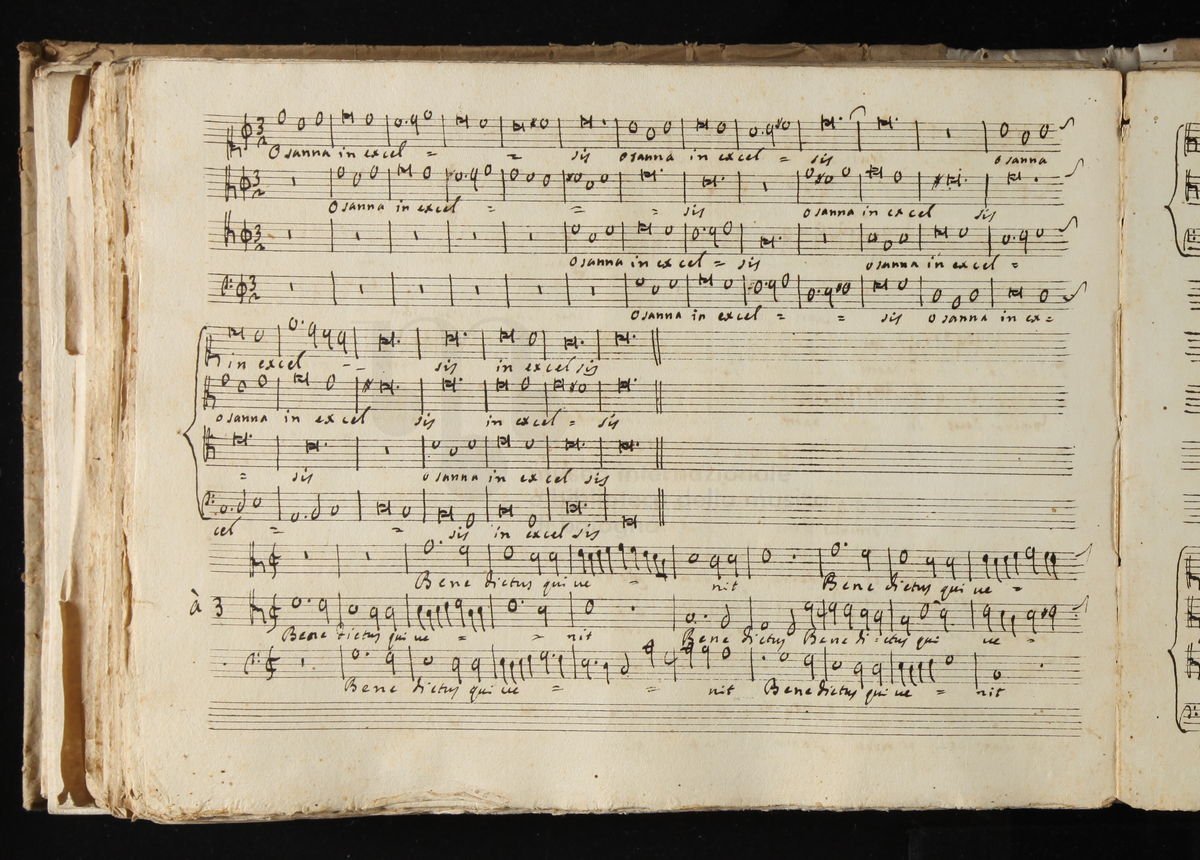 Osanna in excel = = sis osanna in excel = sis osanna
Osanna in excel = = = sis osanna in excel sis
Osanna in excel = sis osanna in excel =
Osanna in excel = = sis osanna in ex=
in excel -- sis in excel sis
osanna in excel sis in excel = sis
= sis osanna in excel sis
cel = = sis in excel sis
Benedictus qui ve = nit Benedictus qui ve =
à 3
Benedictus qui ve = = nit Benedictus Benedictus qui ve =
Benedictus qui ve = = nit Benedictus qui ve = nit